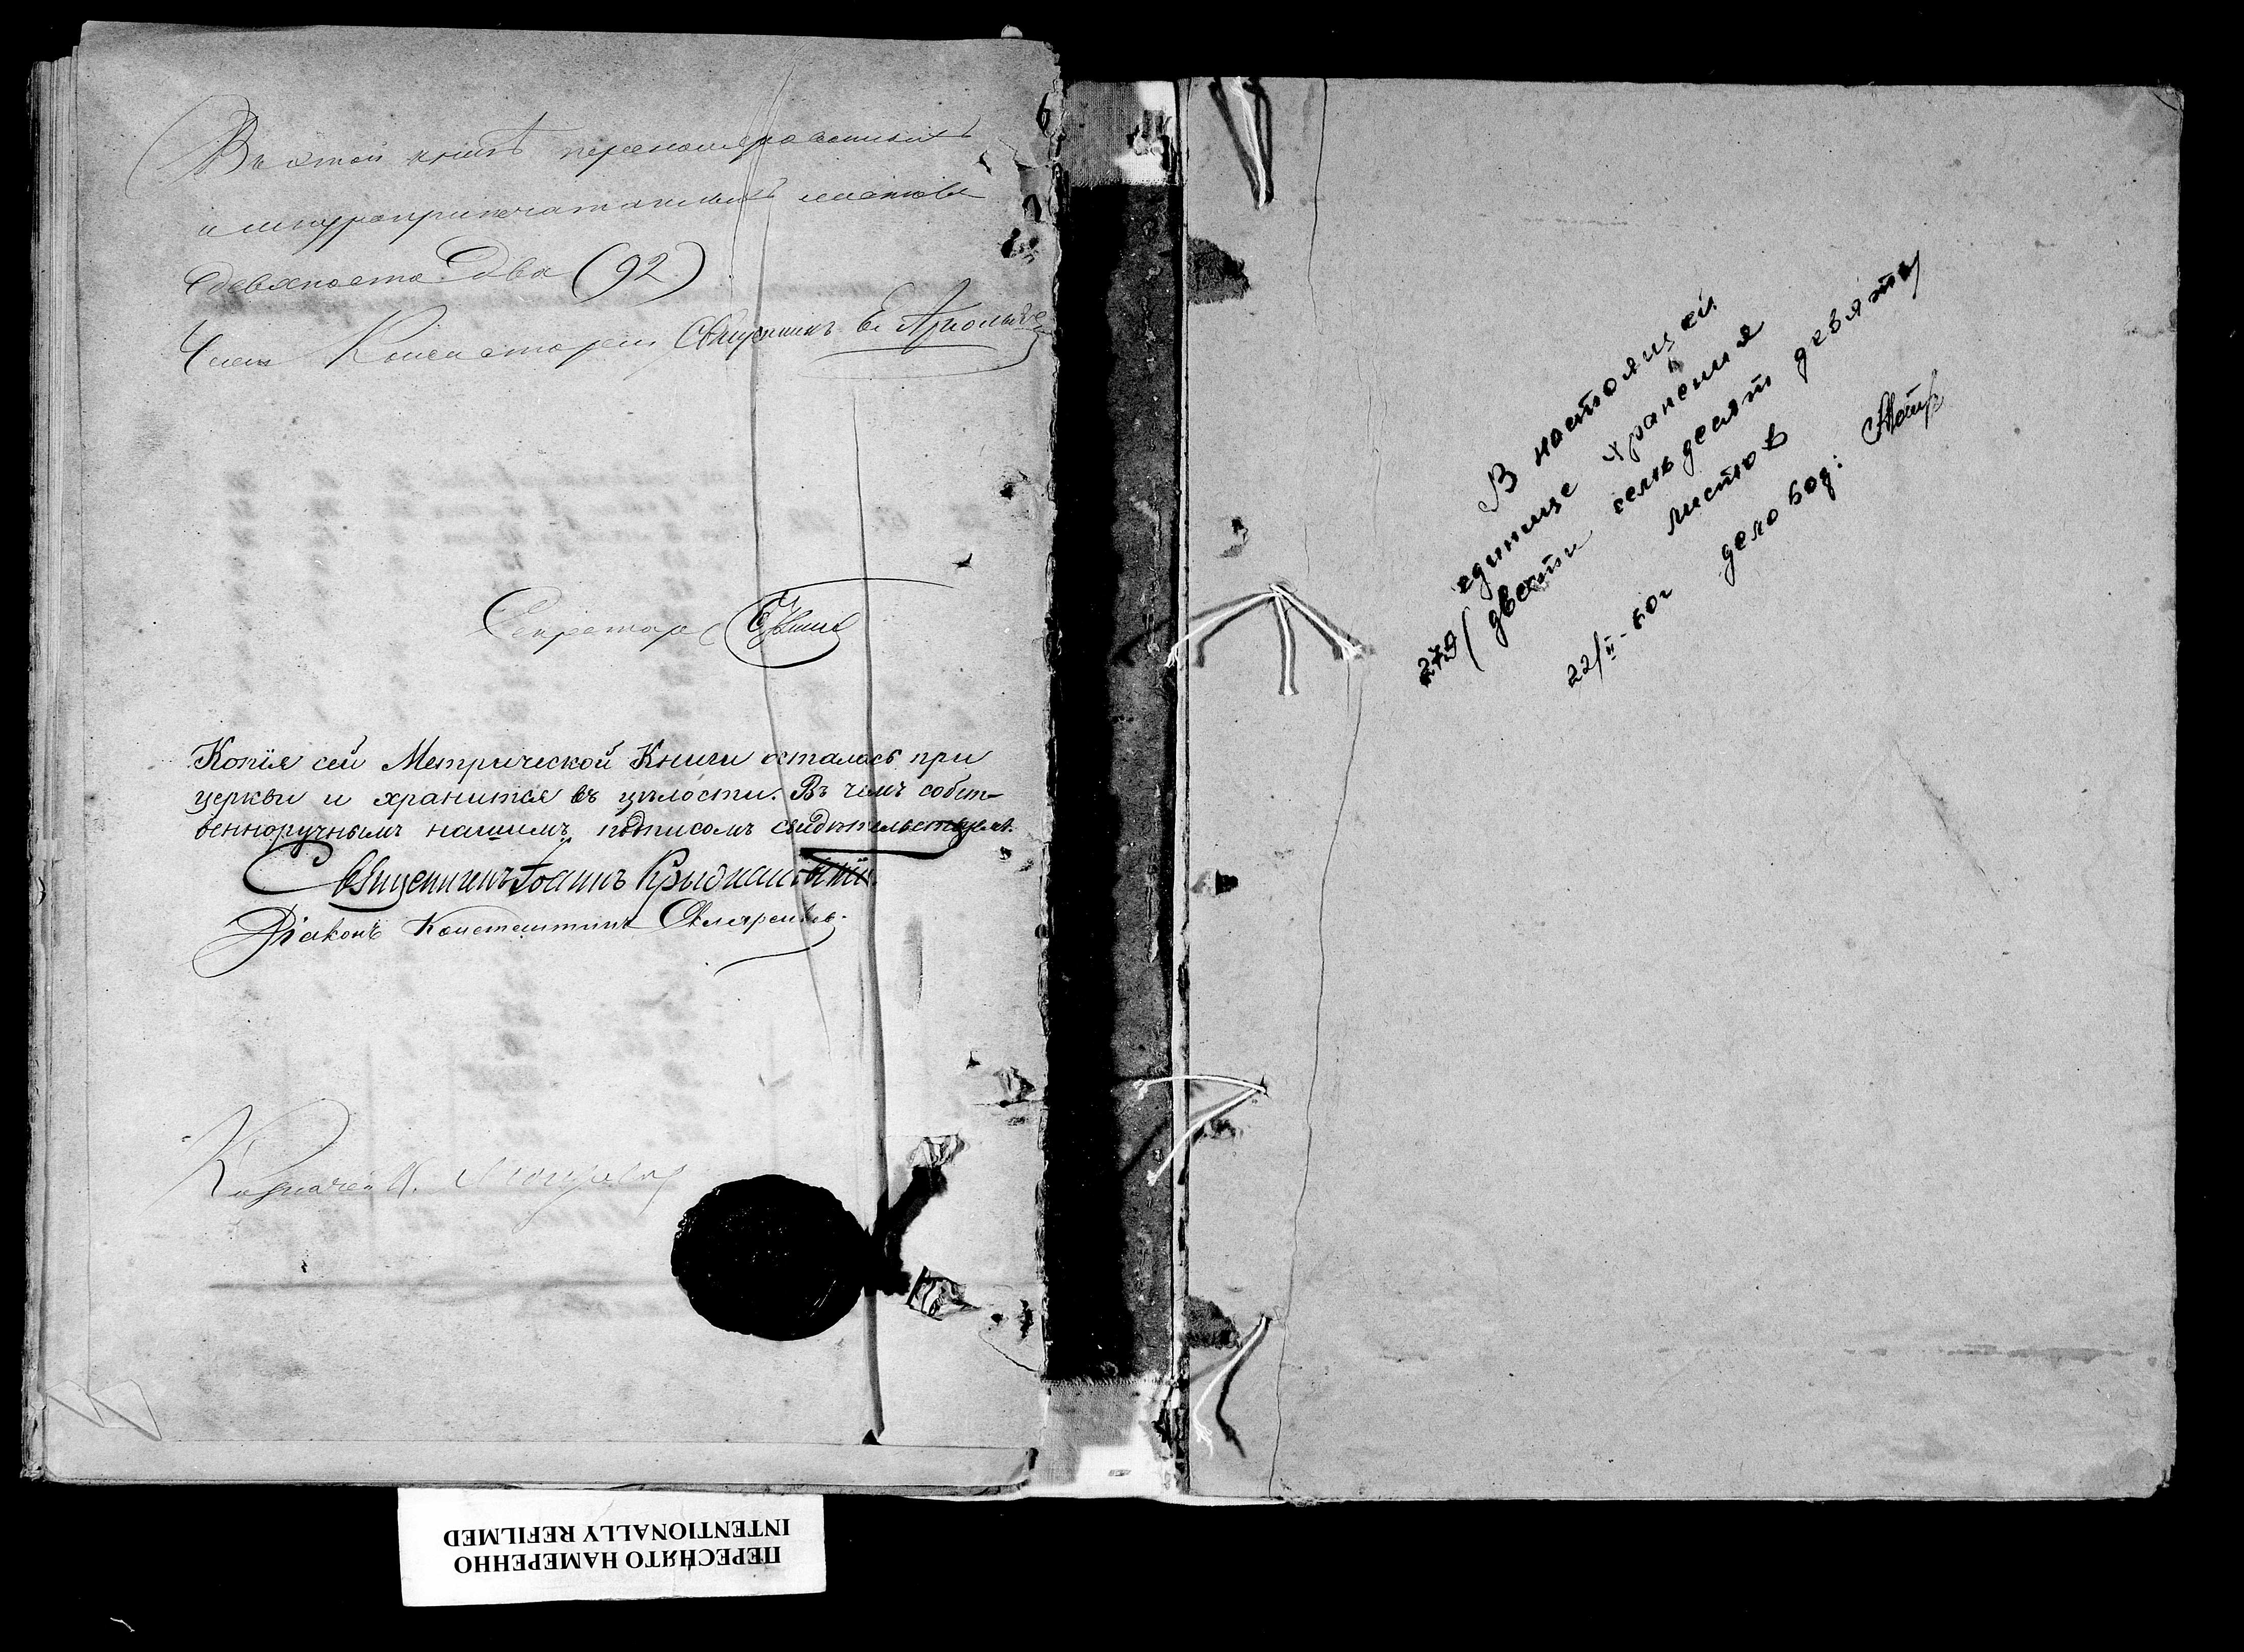 Въ этой книгѣ перенумерованныхъ
и шнуроприпечатанныхъ листовъ
девяносто два (92)
Членъ Консисторіи Священникъ Е.
Секретарь
Копія сей Метрической Книги осталась при
церкви и хранится въ цѣлости. Въ чемъ собст-
венноручнымъ нашимъ подписомъ свидѣтельствуемъ.
Священникъ Іоаннъ Крыжановскій.
Діаконъ Константинъ
Казначей
В настоящей
единице хранения
279 (двести семьдесят девять)
листов
22/II-60г деловод:
ПЕРЕСНЯТО НАМЕРЕННО
INTENTIONALLY REFILMED